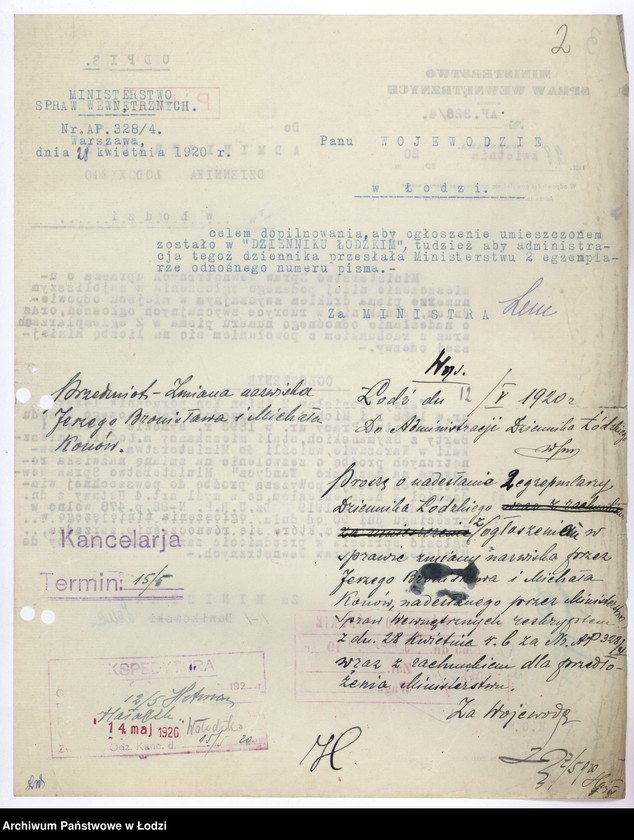 2
MINISTERSTWO
SPRAW WEWNĘTRZNYCH.
Nr.AP.328/4.
Warszawa,
dnia 28 kwietnia 1920 r.
Panu WOJEWODZIE
w Łodzi.
celem dopilnowania, aby ogłoszenie umieszczonem
zostało w "DZIENNIKU ŁÓDZKIM", tudzież aby administra-
cja tegoż dziennika przesłała Ministerstwu 2 egzempla-
rze odnośnego numeru pisma.-
Za MINISTRA
Przedmiot - Zmiana nazwiska
Jerzego Bronisława i Michała
Konów.
Łódź dn 12/V 1920 r
Do Administracji Dziennika Łódzkiego
w/m
Proszę o nadesłanie 2 egzemplarzy
Dziennika Łódzkiego wraz z rachunkiem
za umieszczenie z ogłoszeniem w
sprawie zmiany nazwiska przez
Jerzego Bronisława i Michała
Konów, nadesłanego przez Ministerstwo
Spraw Wewnętrznych reskryptem
z dn. 28 kwietnia r. b. za Nr. AP 328/4
wraz z rachunkiem dla przedło-
żenia Ministerstwu.
Za Wojewodę
Kancelarja
Termin: 15/5
KSPEDYTURA
192
12/5
14 maj 1920
Odz. Kanc. d. 15/5 20
Archiwum Państwowe w Łodzi